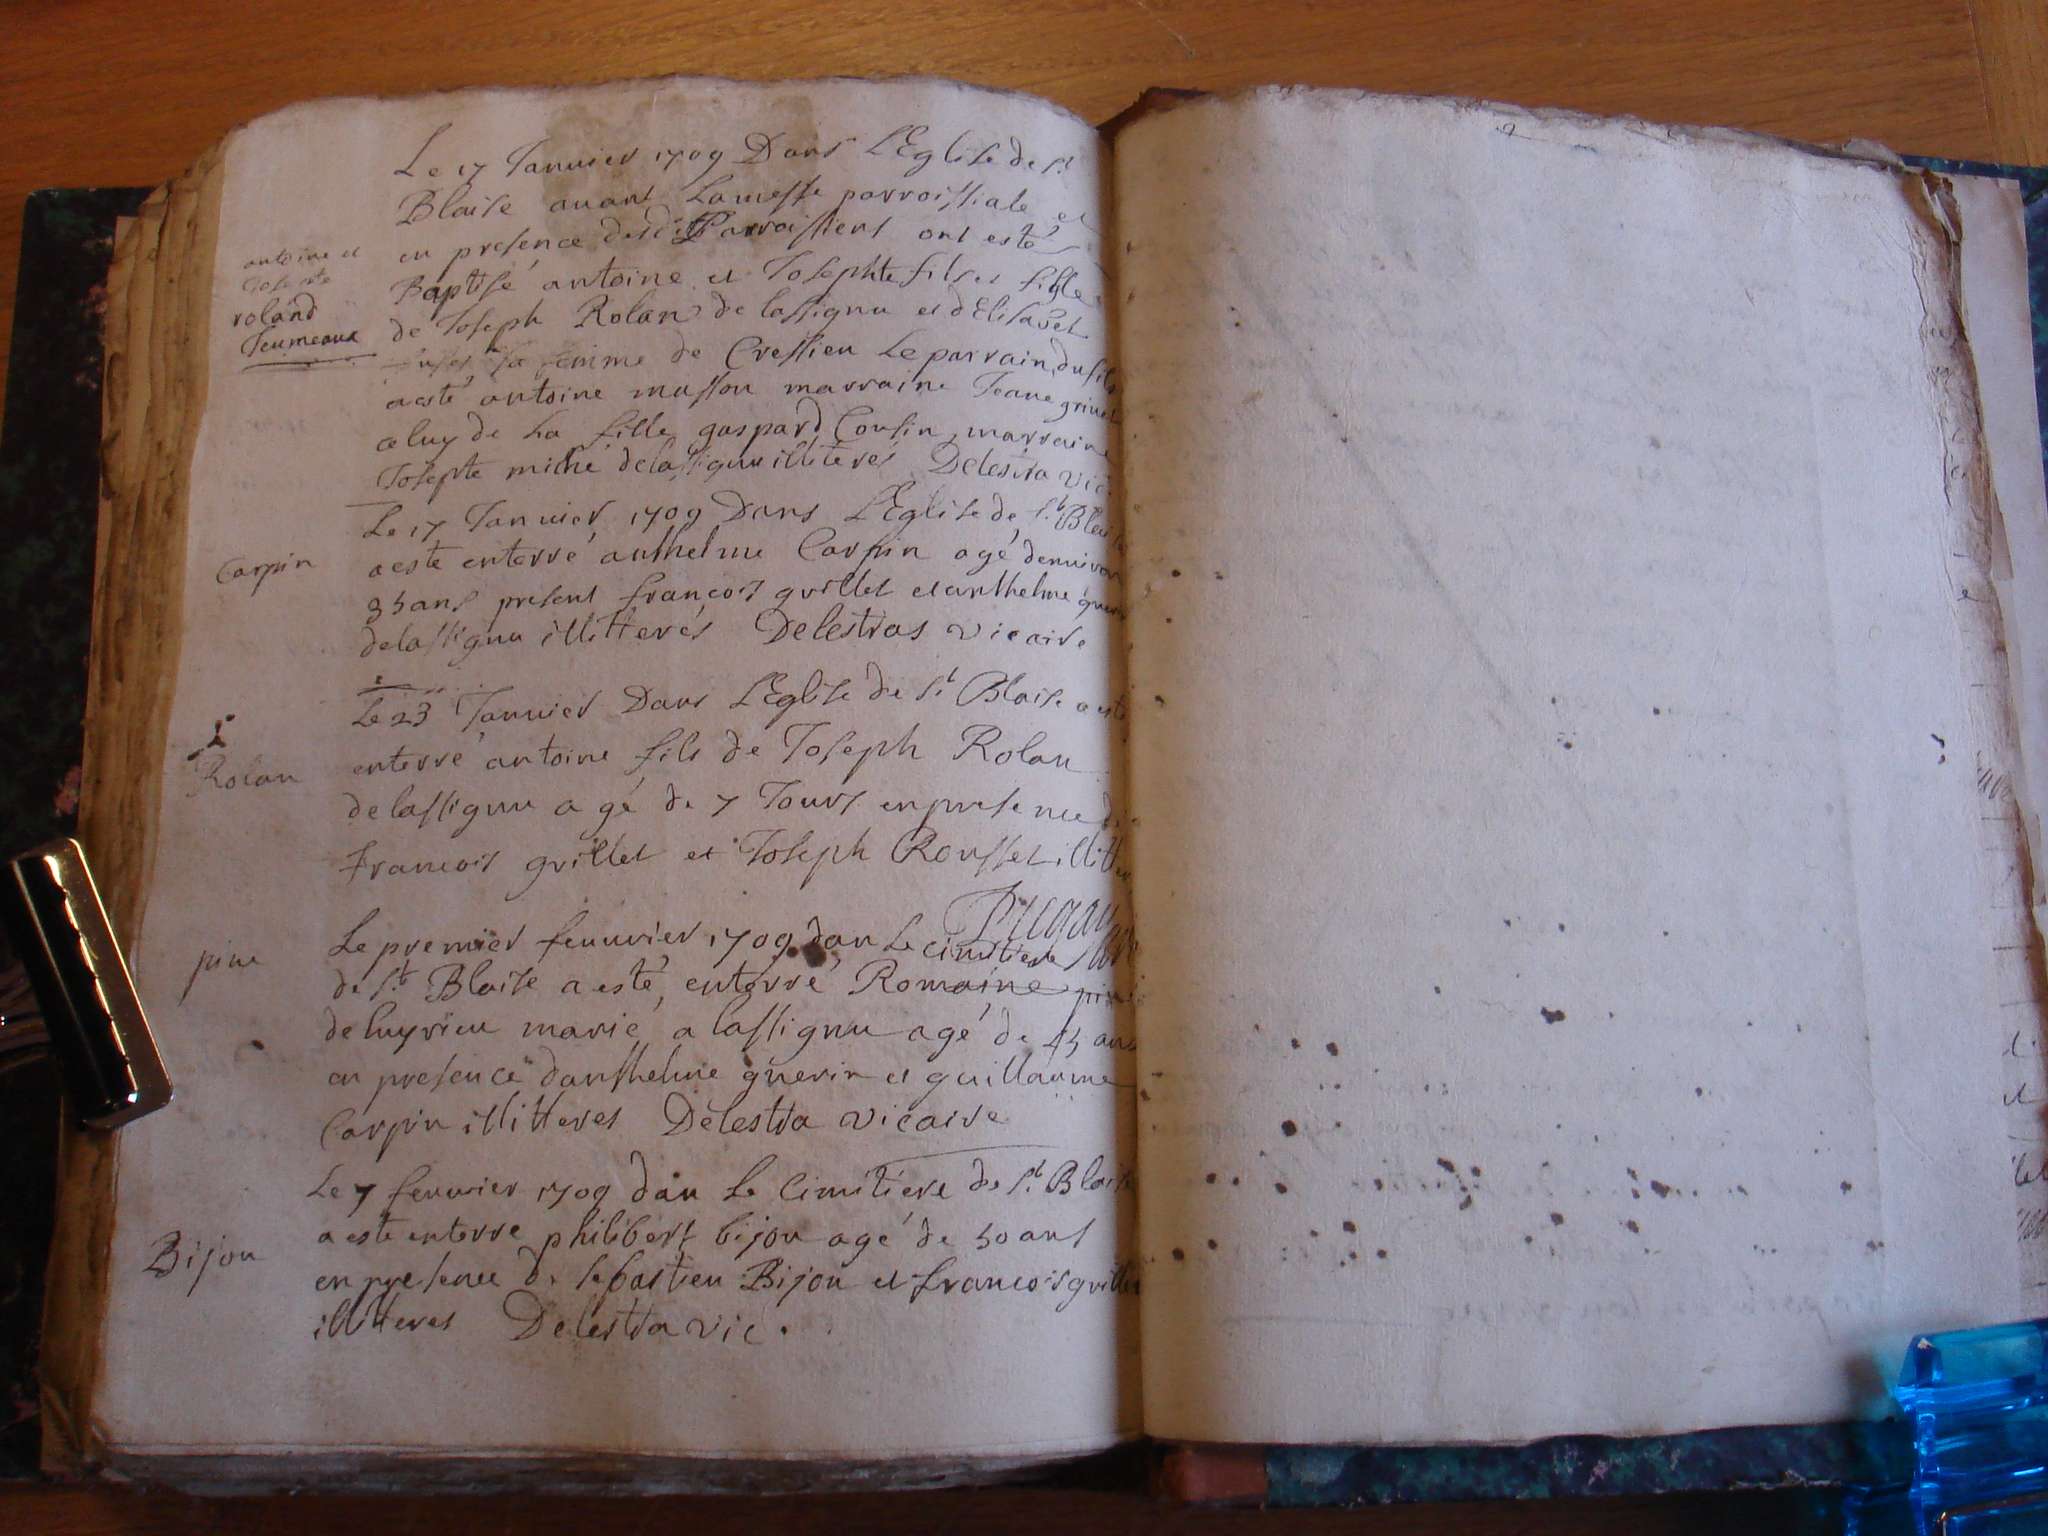 Le 17 Januier 1709 Dans L'Eglise de st
Blaise auant La messe parroissiale et
en presence desdits Parroissiens ont esté
antoine et
Josepte
roland
Jeumeaux
Baptisé antoine et Josephte fils et fille
de Joseph Rolan de lassignu et d'Elisabet
sa femme de Cressieu Le parrain du fils
a esté antoine masson marraine Jeane griuet
celuy de La fille gaspard Cousin marraine
Josepte miché de lassignu illiterés Delestra vic.
Carpin
Le 17 Januier 1709 Dans L'Eglise de st Blaise
a esté enterré anthelme Carpin agé denuiron
35 ans present francois grillet et anthelme guerin
de lassignu illitterés Delestras vicaire
Rolan
Le 23 Januier Dans L'Eglise de st Blaise a esté
enterré antoine fils de Joseph Rolan
de lassignu agé de 7 Jours en presence de
francois grillet et Joseph Rousset illitter
pine
Le premier feuurier 1709 dan Le cimitiere
de st Blaise a esté enterré Romaine pine
de luyrieu marié a lassignu agé de 45 ans
en presence danthelme guerin et guillaume
Carpin illitteres Delestra vicaire
Bijou
Le 7 feurier 1709 dan Le Cimitiere de st Blaise
a esté enterre philibert bijou agé de 50 ans
en presence de sebastien Bijou et francois grillet
illitteres Delestra vic.